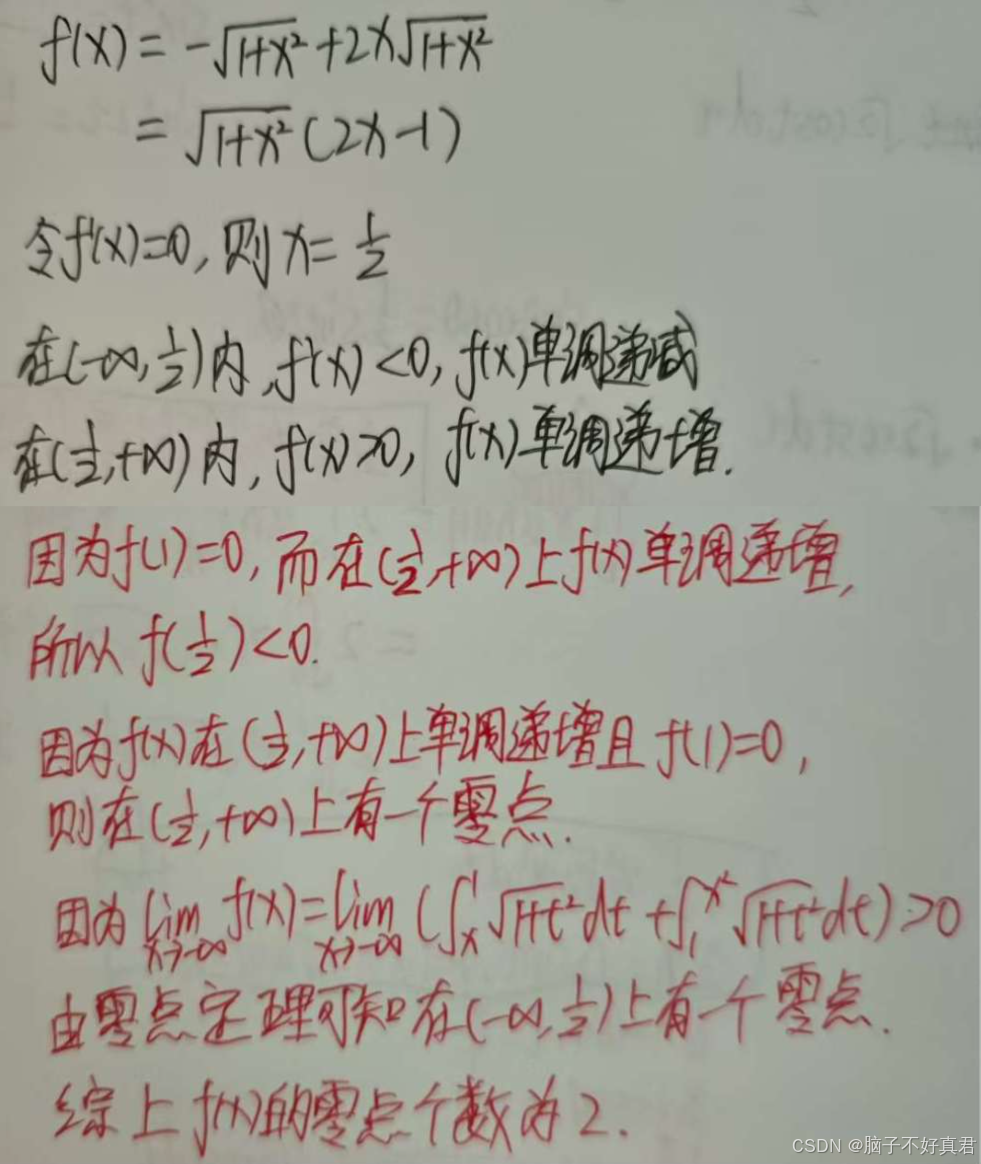 f(x) = -√1+x² + 2x√1+x²
= √1+x² (2x-1)
令f'(x)=0, 则 x= 1/2
在(-∞, 1/2)内, f'(x)<0, f(x)单调递减
在(1/2, +∞)内, f'(x)>0, f(x)单调递增.
因为f(1)=0, 而在(1/2, +∞)上f(x)单调递增,
所以 f(1/2)<0.
因为f(x)在(1/2, +∞)上单调递增且 f(1)=0,
则在(1/2, +∞)上有一个零点.
因为 lim x→-∞ f(x) = lim x→-∞ (∫_x^1 √1+t² dt + ∫_1^x² √1+t² dt) >0
由零点定理可知在(-∞, 1/2)上有一个零点.
综上 f(x)的零点个数为2.
CSDN @脑子不好真君